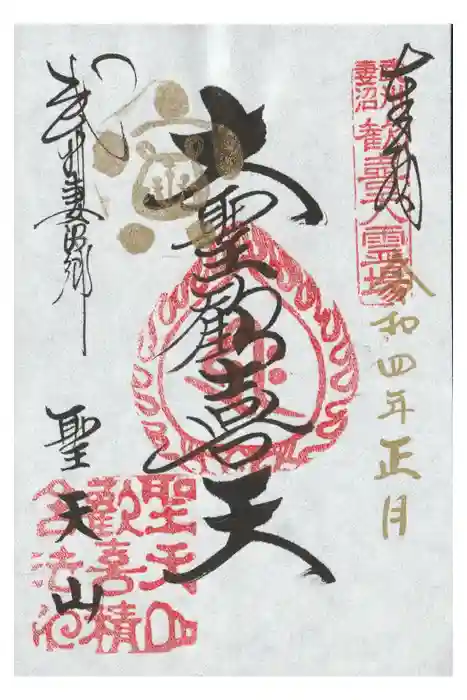 奉拝
武州
妻沼
歓喜天霊場
令和四年正月
大聖歓喜天
武州妻沼郷
聖天山
聖天山
歓喜積